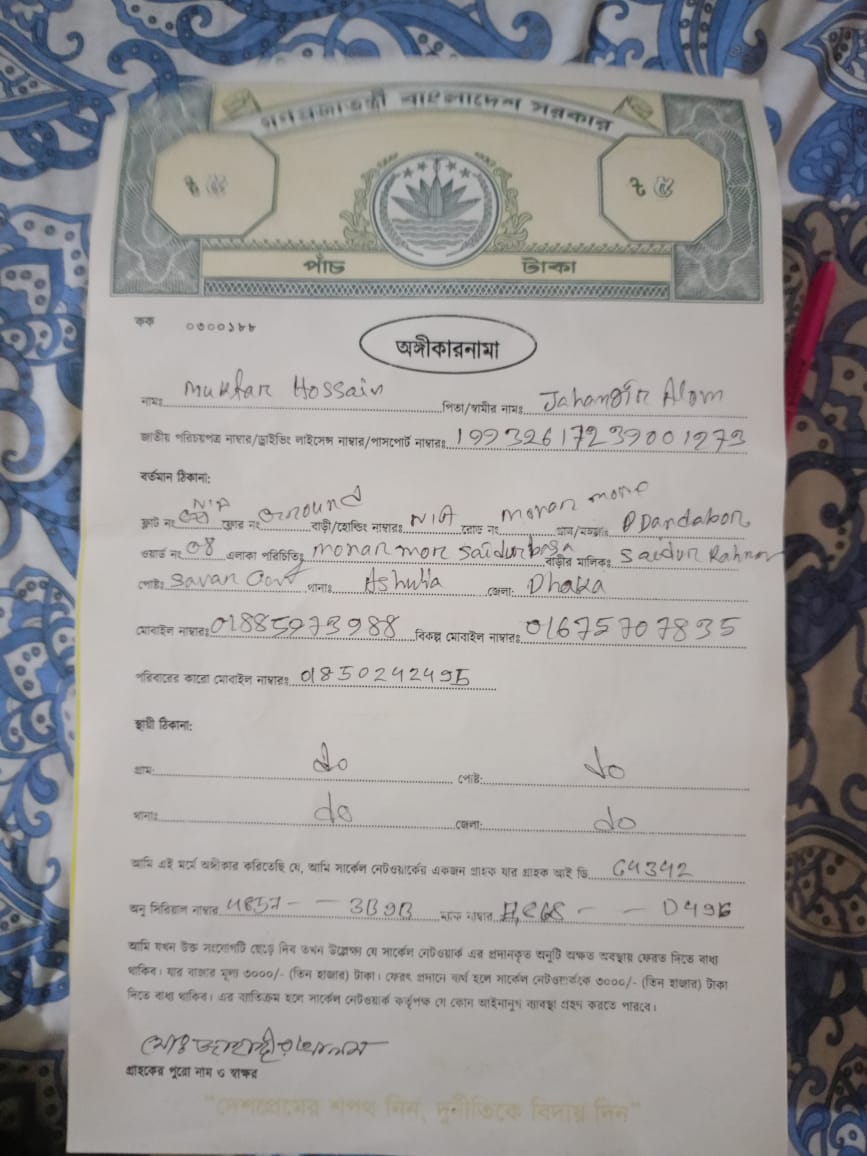 গনপ্রজাতন্ত্রী বাংলাদেশ সরকার
৳ ৫ ৳ ৫
পাঁচ টাকা
কক ০৩০০১৮৮
অঙ্গীকারনামা
নামঃ Muktar Hossain পিতা/স্বামীর নামঃ Jahangir Alom
জাতীয় পরিচয়পত্র নাম্বার/ড্রাইভিং লাইসেন্স নাম্বার/পাসপোর্ট নাম্বারঃ 19932617239001273
বর্তমান ঠিকানা:
ফ্লাট নং N/A ফ্লোর নং Ground বাড়ী/হোল্ডিং নাম্বারঃ N/A রোড নং monan more গ্রাম/মহল্লাঃ
ওয়ার্ড নং 08 এলাকা পরিচিতিঃ monan mor Saidur basa বাড়ীর মালিকঃ Saidur Rahman
পোষ্টঃ Savar Govt থানাঃ Ashulia জেলা: Dhaka
মোবাইল নাম্বারঃ 01885973988 বিকল্প মোবাইল নাম্বারঃ 01675707835
পরিবারের কারো মোবাইল নাম্বারঃ 01850242495
স্থায়ী ঠিকানা:
গ্রাম: do পোষ্ট: do
থানাঃ do জেলা: do
আমি এই মর্মে অঙ্গীকার করিতেছি যে, আমি সার্কেল নেটওয়ার্কের একজন গ্রাহক যার গ্রাহক আই ডি
অনু সিরিয়াল নাম্বার - - 3B9B ম্যাক নাম্বার - - D496
আমি যখন উক্ত সংযোগটি ছেড়ে দিব তখন উল্লেক্ষ্য যে সার্কেল নেটওয়ার্ক এর প্রদানকৃত অনুটি অক্ষত অবস্থায় ফেরত দিতে বাধ্য
থাকিব। যার বাজার মূল্য ৩০০০/- (তিন হাজার) টাকা। ফেরৎ প্রদানে ব্যর্থ হলে সার্কেল নেটওয়ার্ককে ৩০০০/- (তিন হাজার) টাকা
দিতে বাধ্য থাকিব। এর ব্যতিক্রম হলে সার্কেল নেটওয়ার্ক কর্তৃপক্ষ যে কোন আইনানুগ ব্যবস্থা গ্রহণ করতে পারবে।
মোঃ জাহাঙ্গীর আলম
গ্রাহকের পুরো নাম ও স্বাক্ষর
"দেশপ্রেমের শপথ নিন, দুর্নীতিকে বিদায় দিন"